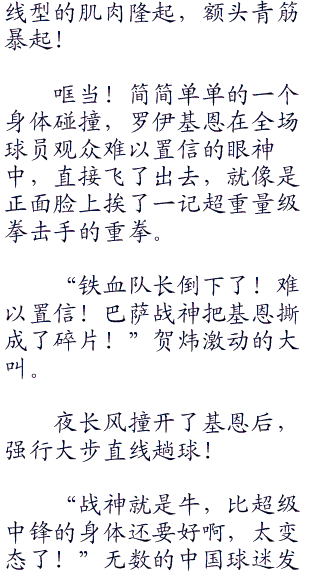 线型的肌肉隆起，额头青筋
暴起！
哐当！简简单单的一个
身体碰撞，罗伊基恩在全场
球员观众难以置信的眼神
中，直接飞了出去，就像是
正面脸上挨了一记超重量级
拳击手的重拳。
“铁血队长倒下了！难
以置信！巴萨战神把基恩撕
成了碎片！”贺炜激动的大
叫。
夜长风撞开了基恩后，
强行大步直线趟球！
“战神就是牛，比超级
中锋的身体还要好啊，太变
态了！”无数的中国球迷发